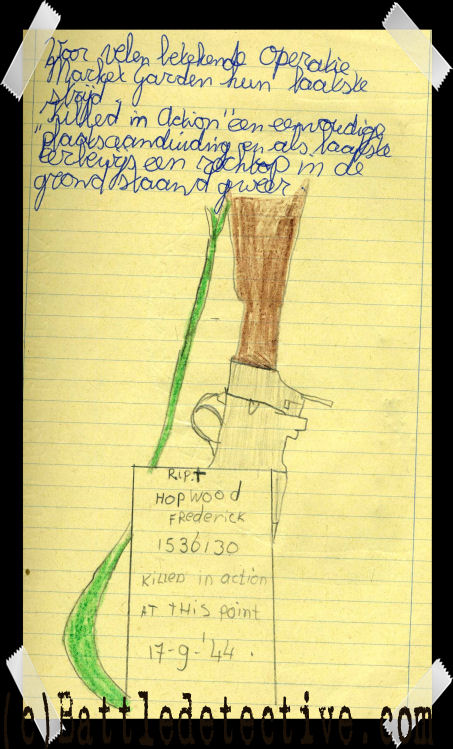 Voor velen betekende Operatie
Market Garden hun laatste
strijd.
"Killed in Action" een eenvoudige
plaatsaanduiding en als laatste
eerbewijs een rechtop in de
grond staand geweer.
R.I.P.✝
HOPWOOD
FREDERICK
1536130
KILLED in action
AT THIS POINT
17-9-'44.
(c)Battledetective.com